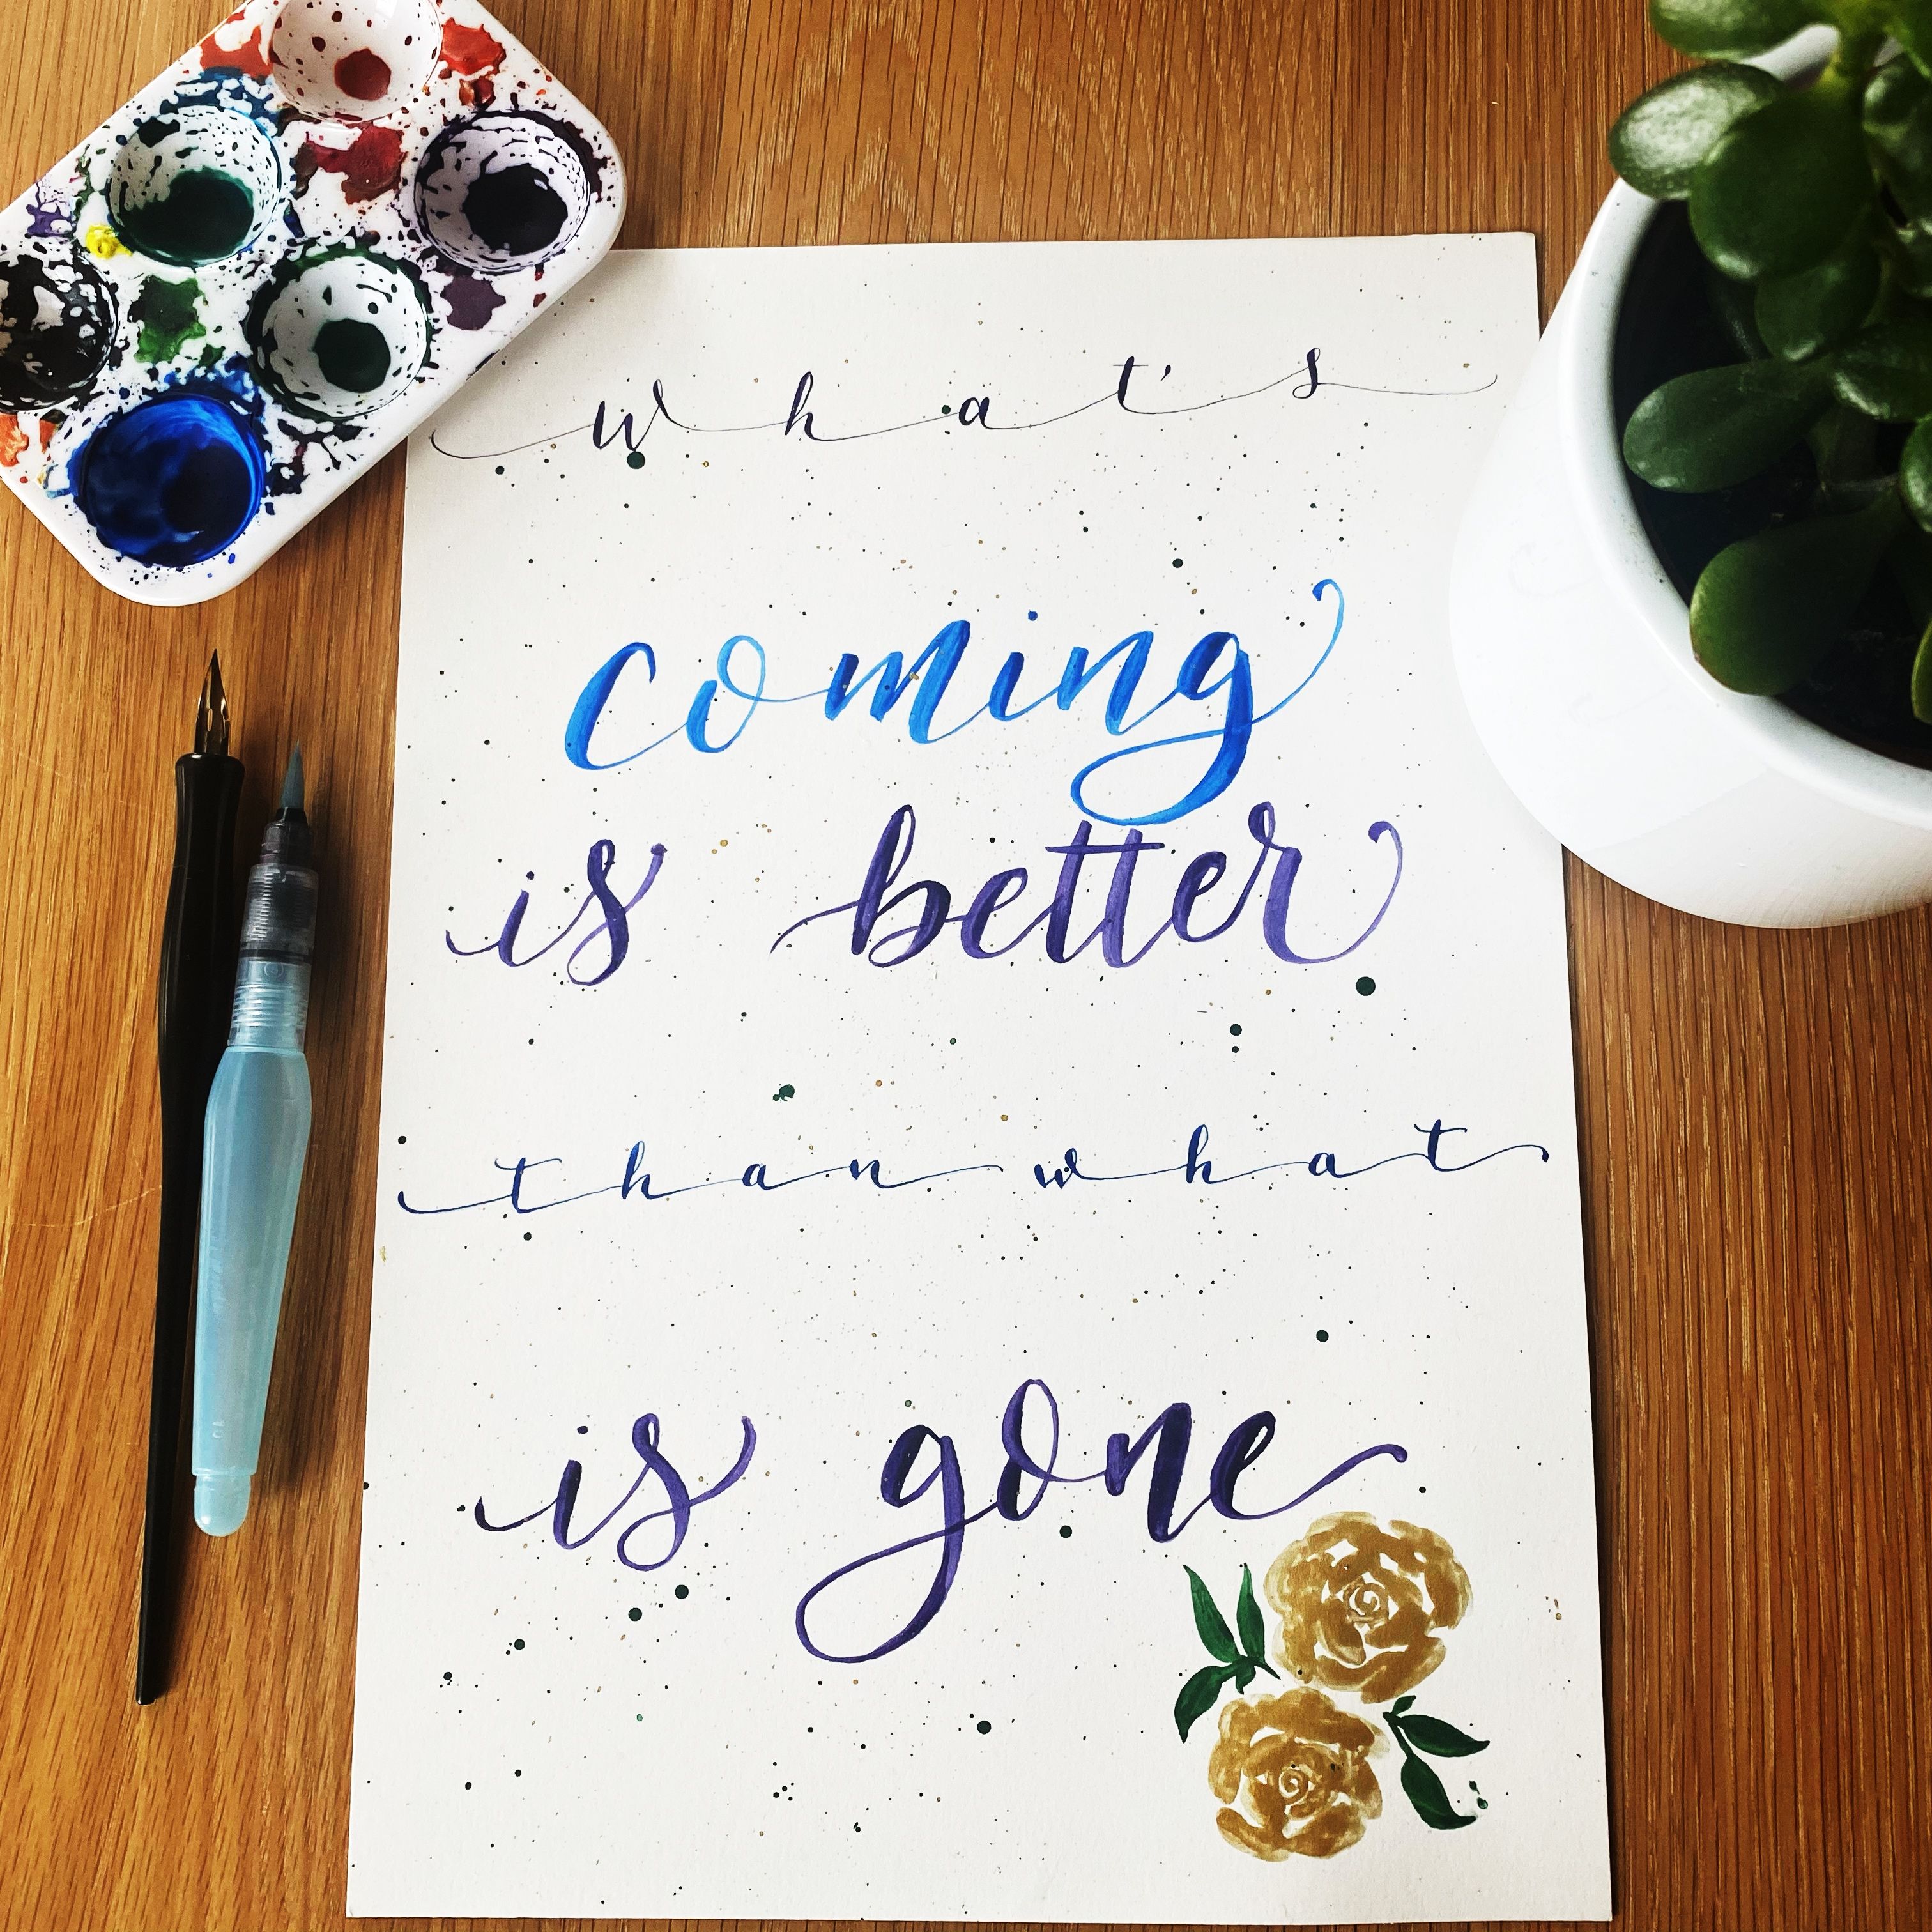 what's
coming
is better
than what
is gone